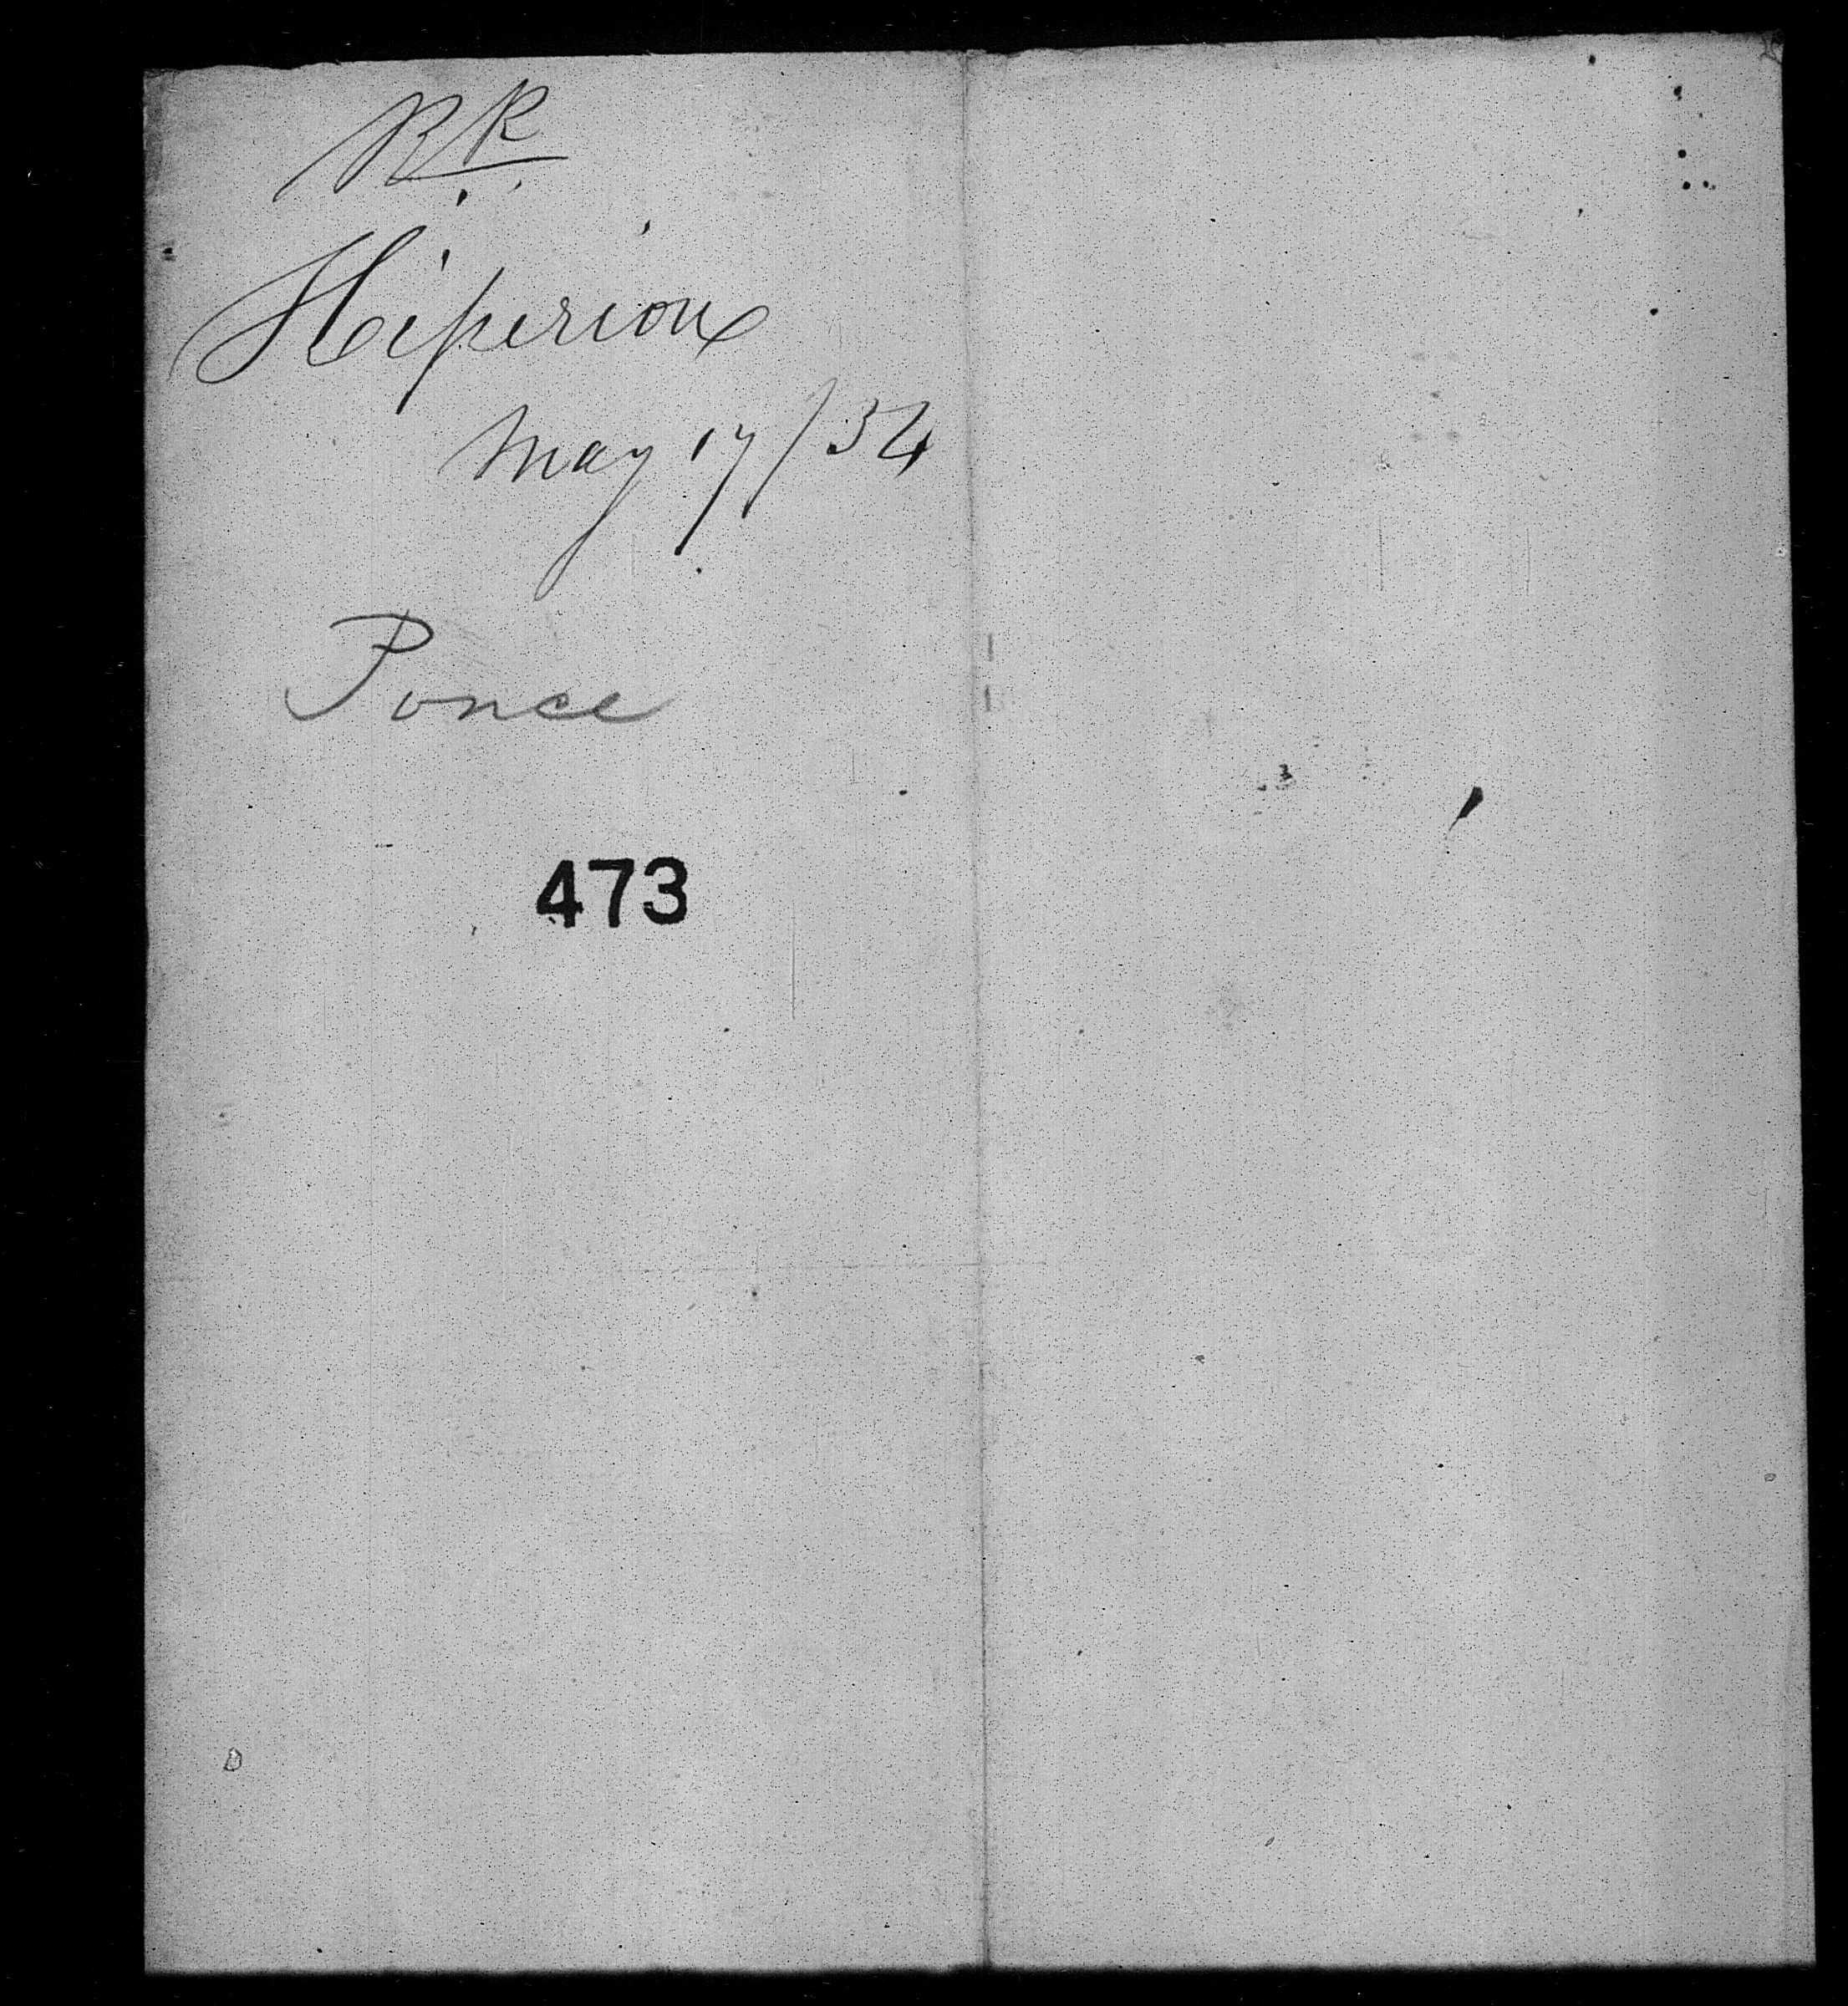 RR
Hiperion
May 17/34
Ponce
473